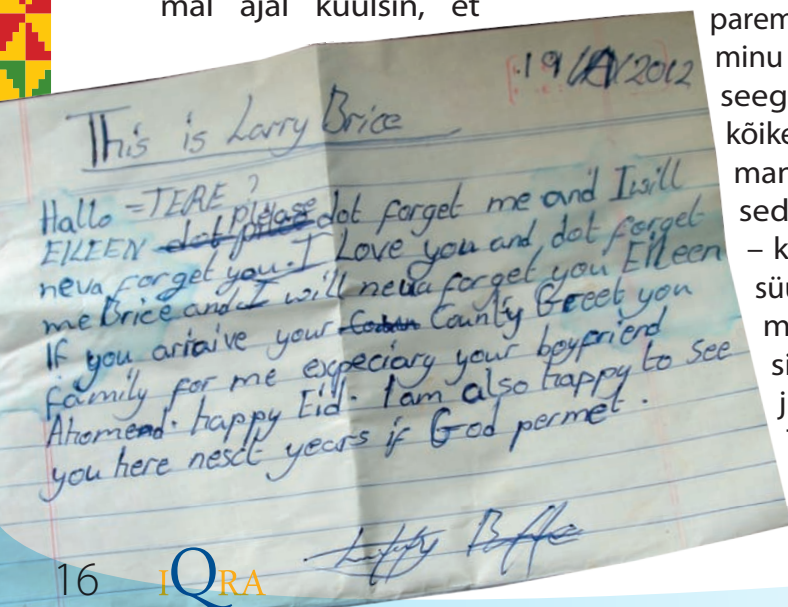 mal ajal kuulsin, et
parem
minu
seeg
kõike
mar
sed
– k
süü
m
si
j
19 2012
This is Larry Brice
Hallo =TERE ?
EILEEN please dot forget me and I will
neva forget you. I Love you and dot forget
me Brice and I will neva forget you Eileen
If you ariaive your County Greet you
family for me expeciary your boyfriend
Ahomed. happy Eid. I am also happy to see
you here nesct years if God permet.
16 IQRA